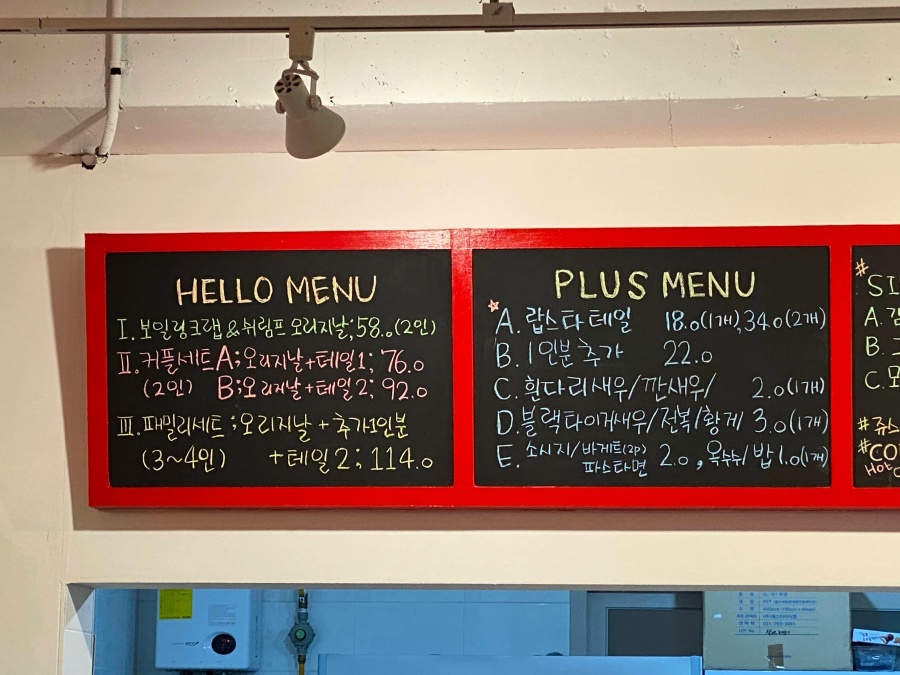 HELLO MENU
I. 보일링크랩 & 쉬림프 오리지날; 58.0(2인)
II. 커플세트 A; 오리지날+테일1; 76.0
(2인) B; 오리지날+테일2; 92.0
III. 패밀리세트; 오리지날 + 추가1인분
(3~4인) +테일2; 114.0
PLUS MENU
A. 랍스타테일 18.0(1개), 34.0(2개)
B. 1인분추가 22.0
C. 흰다리새우/깐새우/ 2.0(1개)
D. 블랙타이거새우/전복/황게 3.0(1개)
E. 소시지/바게트(2p)
파스타면 2.0, 옥수수/밥 1.0(1개)
#
SI
A.
B.
C.
#쥬스
#CO
Hot